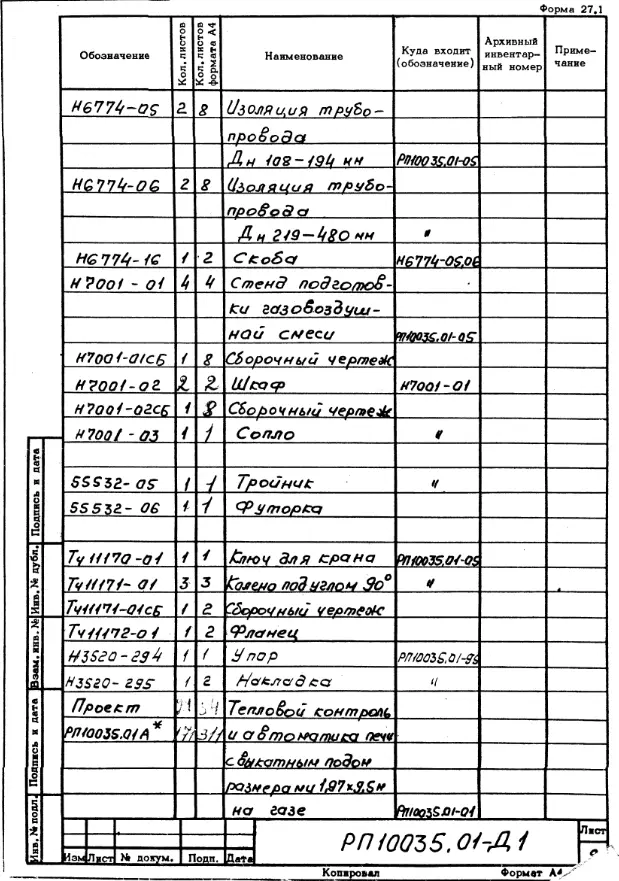 Форма 27.1
Обозначение Кол. листов Кол. листов формата А4 Наименование Куда входит (обозначение) Архивный инвентарный номер Примечание
Н6774-05 2 8 Изоляция трубо-
провода
Дн 108-194 мм РП10035.01-05
Н6774-06 2 8 Изоляция трубо-
провода
Дн 219-480 мм "
Н6774-16 1 2 Скоба Н6774-05,06
Н7001-01 4 4 Стенд подготов-
ки газовоздуш-
ной смеси РП10035.01-05
Н7001-01СБ 1 8 Сборочный чертеж
Н7001-02 2 2 Шкаф Н7001-01
Н7001-02СБ 1 8 Сборочный чертеж
Н7001-03 1 1 Сопло "
55532-05 1 1 Тройник "
55532-06 1 1 Футорка
Ту11170-01 1 1 Ключ для крана РП10035.01-05
Ту11171-01 3 3 Колено под углом 90° "
Ту11171-01СБ 1 2 Сборочный чертеж
Ту11172-01 1 2 Фланец
Н3520-294 1 1 Упор РП10035.01-
Н3520-295 1 2 Накладка "
Проект Тепловой контроль
РП10035.01А* и автоматика печи
с выкатным подом
размерами 1,97х9,5м
на газе РП10035.01-01
Подпись и дата
Инв. № дубл.
Взам. инв. №
Подпись и дата
Инв. № подл.
Изм Лист № докум. Подп. Дата
РП10035.01-Д1
Лист
Копировал Формат А4